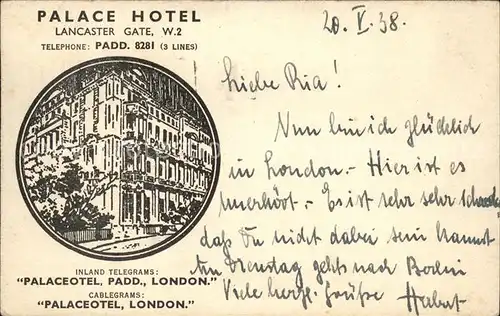 PALACE HOTEL
LANCASTER GATE, W.2
TELEPHONE: PADD. 8281 (3 LINES)
INLAND TELEGRAMS:
"PALACEOTEL, PADD., LONDON."
CABLEGRAMS:
"PALACEOTEL, LONDON."
20. V. 38.
Liebe Ria!
Nun bin ich glücklich
in London.- Hier ist es
unerhört.- Es ist sehr sehr schade
daß Du nicht dabei sein kannst
Am Dienstag gehts nach Berlin
Viele herzl. Grüße